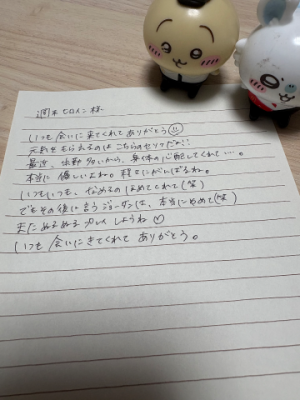 週末ヒロイン様
いつも会いに来てくれてありがとう☺
元気をもらえるのはこちらのセリフだよ!!
最近、出勤多いから、身体の心配してくれて…。
本当に優しいよね。程々にがんばるね。
いつもいつも、なめるのほめてくれて(笑)
でもその後に言うジョーダンは、本当にやめて(笑)
またぬるぬるプレイしようね♡
いつも会いにきてくれてありがとう。